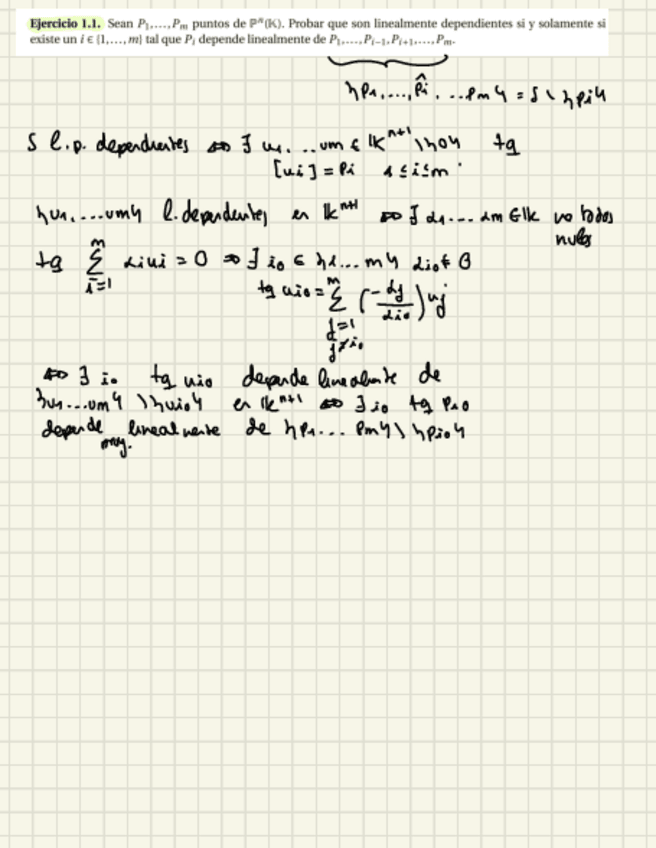 Ejercicio 1.1. Sean P₁,…,Pₘ puntos de ℙⁿ(𝕂). Probar que son linealmente dependientes si y solamente si
existe un i ∈ {1,…,m} tal que Pᵢ depende linealmente de P₁,…,Pᵢ₋₁,Pᵢ₊₁,…,Pₘ.
{P₁,…, P̂ᵢ, …Pₘ} = S \ {Pᵢ}
S l.p. dependientes ⇔ ∃ u₁…uₘ ∈ 𝕂ⁿ⁺¹ \ {0} tq
[uᵢ] = Pᵢ 1 ≤ i ≤ m
{u₁,…uₘ} l. dependientes en 𝕂ⁿ⁺¹ ⇔ ∃ α₁…αₘ ∈ 𝕂 no todos
nulos
tq ∑ᵢ₌₁ᵐ αᵢuᵢ = 0 ⇒ ∃ i₀ ∈ {1…m} αᵢ₀ ≠ 0
tq uᵢ₀ = ∑ⱼ₌₁, ⱼ≠ᵢ₀ᵐ (-αⱼ/αᵢ₀) uⱼ
⇔ ∃ i₀ tq uᵢ₀ depende linealmente de
{u₁…uₘ} \ {uᵢ₀} en 𝕂ⁿ⁺¹ ⇔ ∃ i₀ tq Pᵢ₀
depende linealmente de {P₁… Pₘ} \ {Pᵢ₀}
proy.